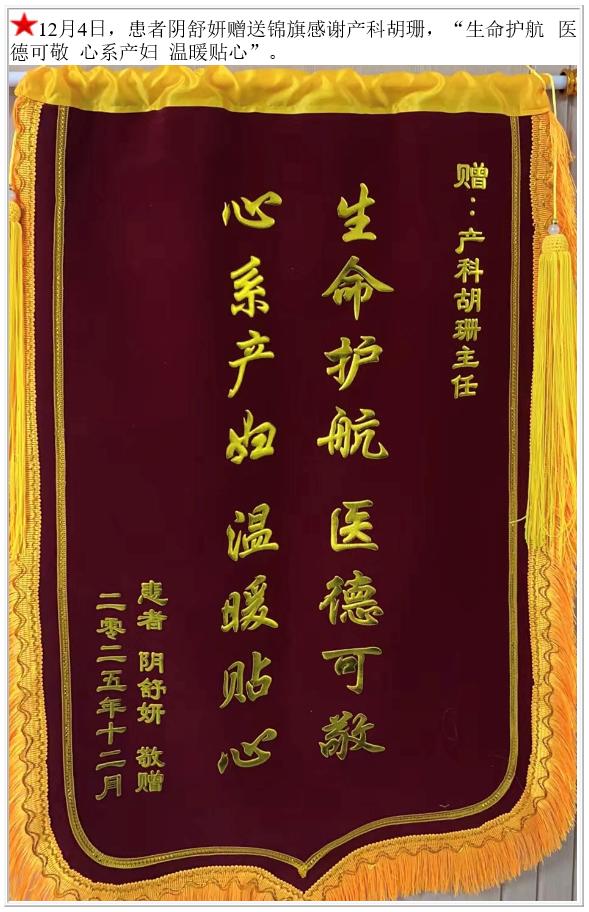 12月4日，患者阴舒妍赠送锦旗感谢产科胡珊，“生命护航 医
德可敬 心系产妇 温暖贴心”。
赠：产科胡珊主任
生命护航 医德可敬
心系产妇 温暖贴心
患者 阴舒妍 敬赠
二零二五年十二月